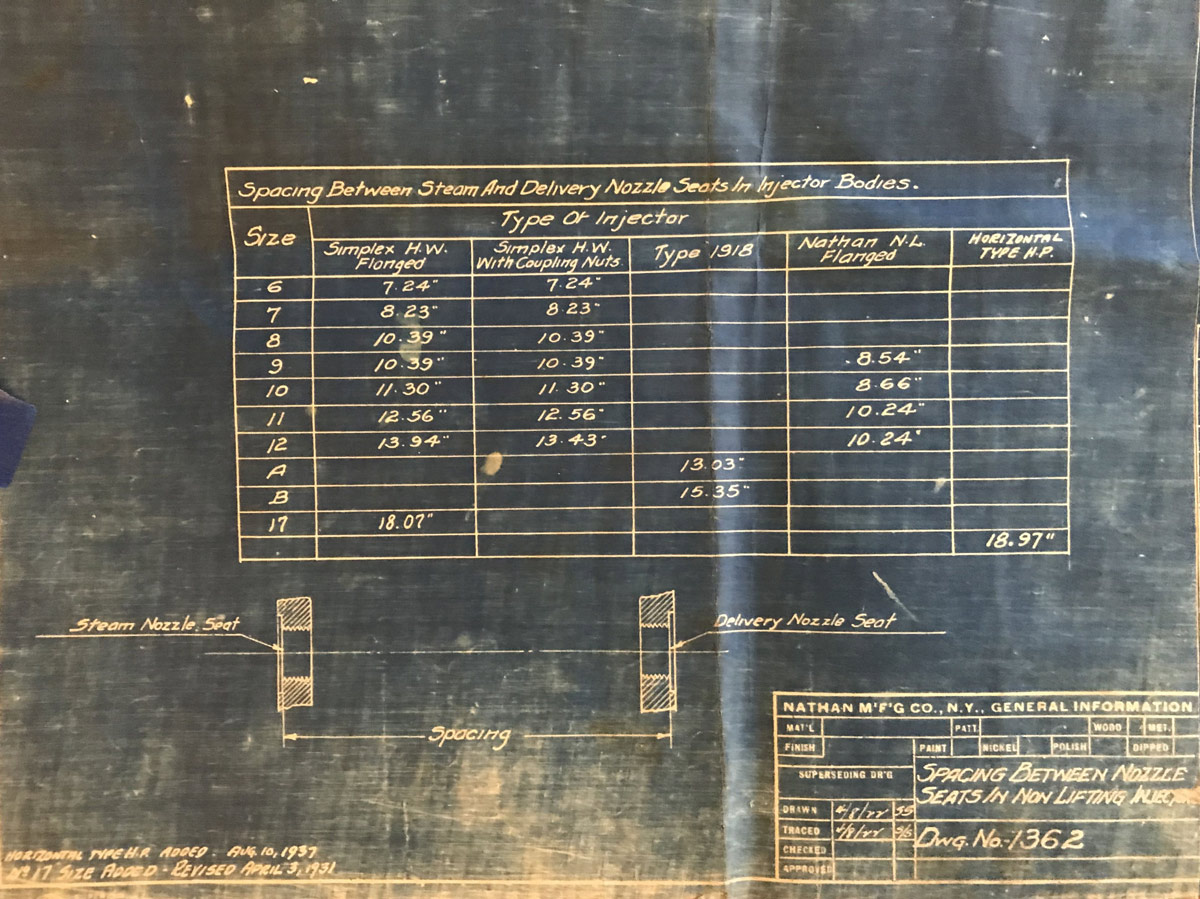 Spacing Between Steam And Delivery Nozzle Seats In Injector Bodies.
Size
Type Of Injector
Simplex H.W. Flanged
Simplex H.W. With Coupling Nuts.
Type 1918
Nathan N.L. Flanged
HORIZONTAL TYPE H.P.
6 7.24" 7.24"
7 8.23" 8.23"
8 10.39" 10.39"
9 10.39" 10.39" 8.54"
10 11.30" 11.30" 8.66"
11 12.56" 12.56" 10.24"
12 13.94" 13.43" 10.24"
A 13.03"
B 15.35"
17 18.07"
18.97"
Steam Nozzle Seat
Delivery Nozzle Seat
Spacing
NATHAN M'F'G CO., N.Y., GENERAL INFORMATION
MAT'L PATT. WOOD MET.
FINISH PAINT NICKEL POLISH DIPPED
SUPERSEDING DR'G
SPACING BETWEEN NOZZLE
SEATS IN NON LIFTING INJECTOR
DRAWN 4/8/22 SS
TRACED 4/8/22
Dwg. No.-1362
CHECKED
APPROVED
HORIZONTAL TYPE H.P. ADDED - AUG. 10, 1937
No 17 SIZE ADDED - REVISED APRIL 3, 1931